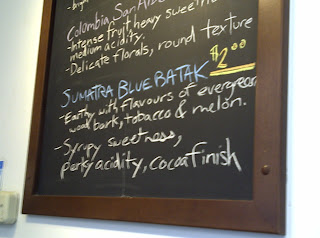 - brigh
Colombia, San
- Intense fruit, heavy sweetn
medium acidity.
- Delicate florals, round texture
$2.00
SUMATRA BLUE BATAK
- Earthy with flavours of evergreen
wood bark, tobacco & melon.
- Syrupy sweetness,
perky acidity, cocoa finish